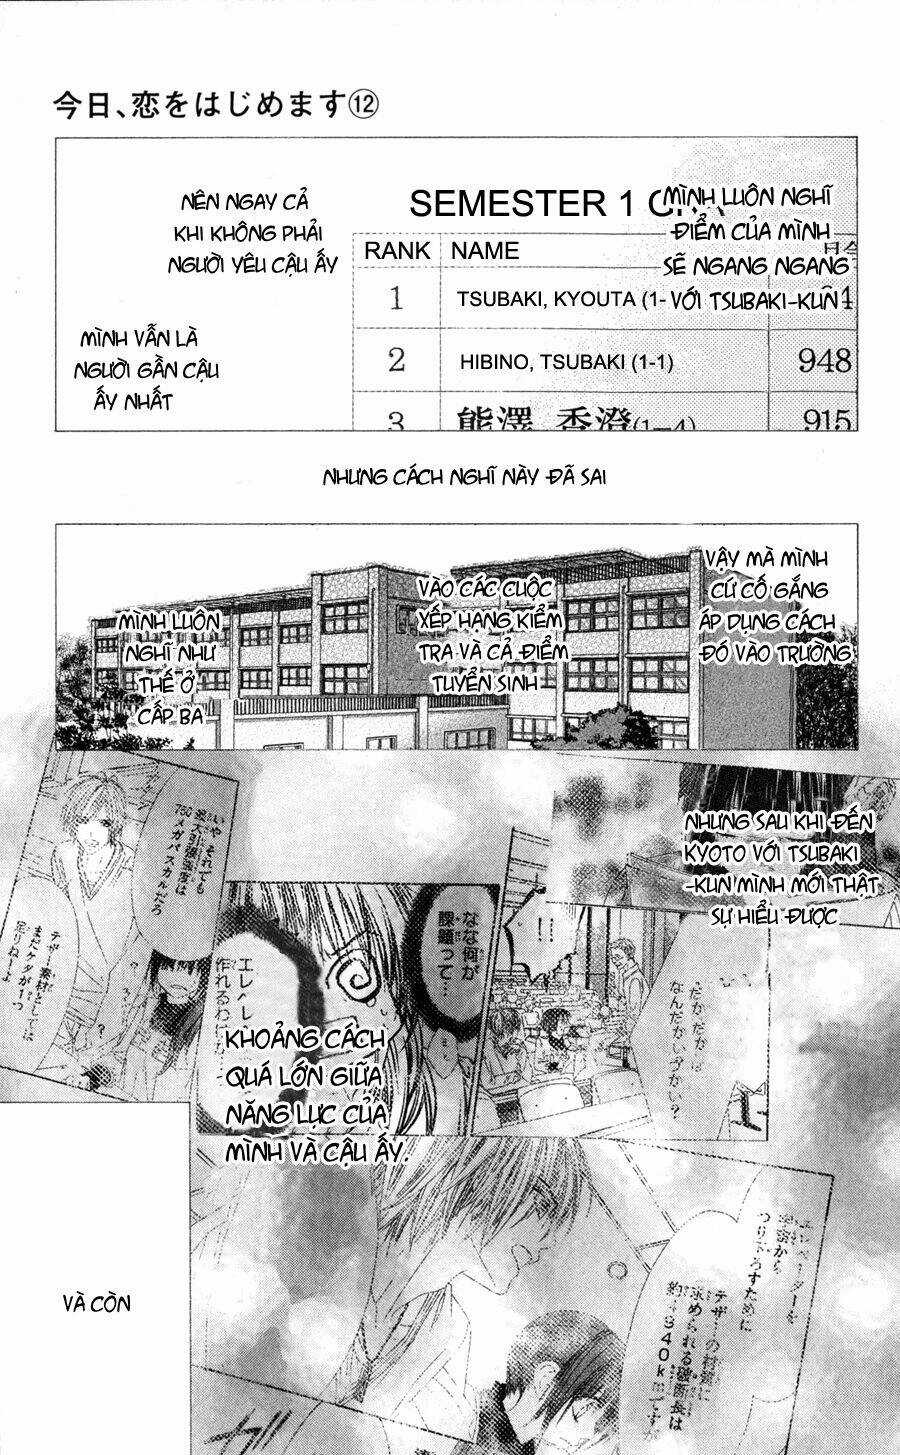 今日、恋をはじめます⑫
MÌNH LUÔN NGHĨ
ĐIỂM CỦA MÌNH
SẼ NGANG NGANG
VỚI TSUBAKI-KUN
NÊN NGAY CẢ
KHI KHÔNG PHẢI
NGƯỜI YÊU CẬU ẤY
MÌNH VẪN LÀ
NGƯỜI GẦN CẬU
ẤY NHẤT
SEMESTER 1
RANK NAME
1 TSUBAKI, KYOUTA (1-
2 HIBINO, TSUBAKI (1-1) 948
3 熊澤 香澄(1-4) 915
NHƯNG CÁCH NGHĨ NÀY ĐÃ SAI
VẬY MÀ MÌNH
CỨ CỐ GẮNG
ÁP DỤNG CÁCH
ĐÓ VÀO TRƯỜNG
VÀO CÁC CUỘC
XẾP HẠNG KIỂM
TRA VÀ CẢ ĐIỂM
TUYỂN SINH
MÌNH LUÔN
NGHĨ NHƯ
THẾ Ở
CẤP BA
NHƯNG SAU KHI ĐẾN
KYOTO VỚI TSUBAKI
-KUN MÌNH MỚI THẬT
SỰ HIỂU ĐƯỢC
!!
なんだかいづかい?
なな何が
課題って…
エレベ
作れるわに
いや それでも
最大引張強度は
750メガパスカルだろ
テザー素材としては
まだケタが1つ
足りねーよ
KHOẢNG CÁCH
QUÁ LỚN GIỮA
NĂNG LỰC CỦA
MÌNH VÀ CẬU ẤY.
エレベーターを
宇宙から
つり下ろすために
テザーの材質に
求められる破断長は
約4940km
VÀ CÒN